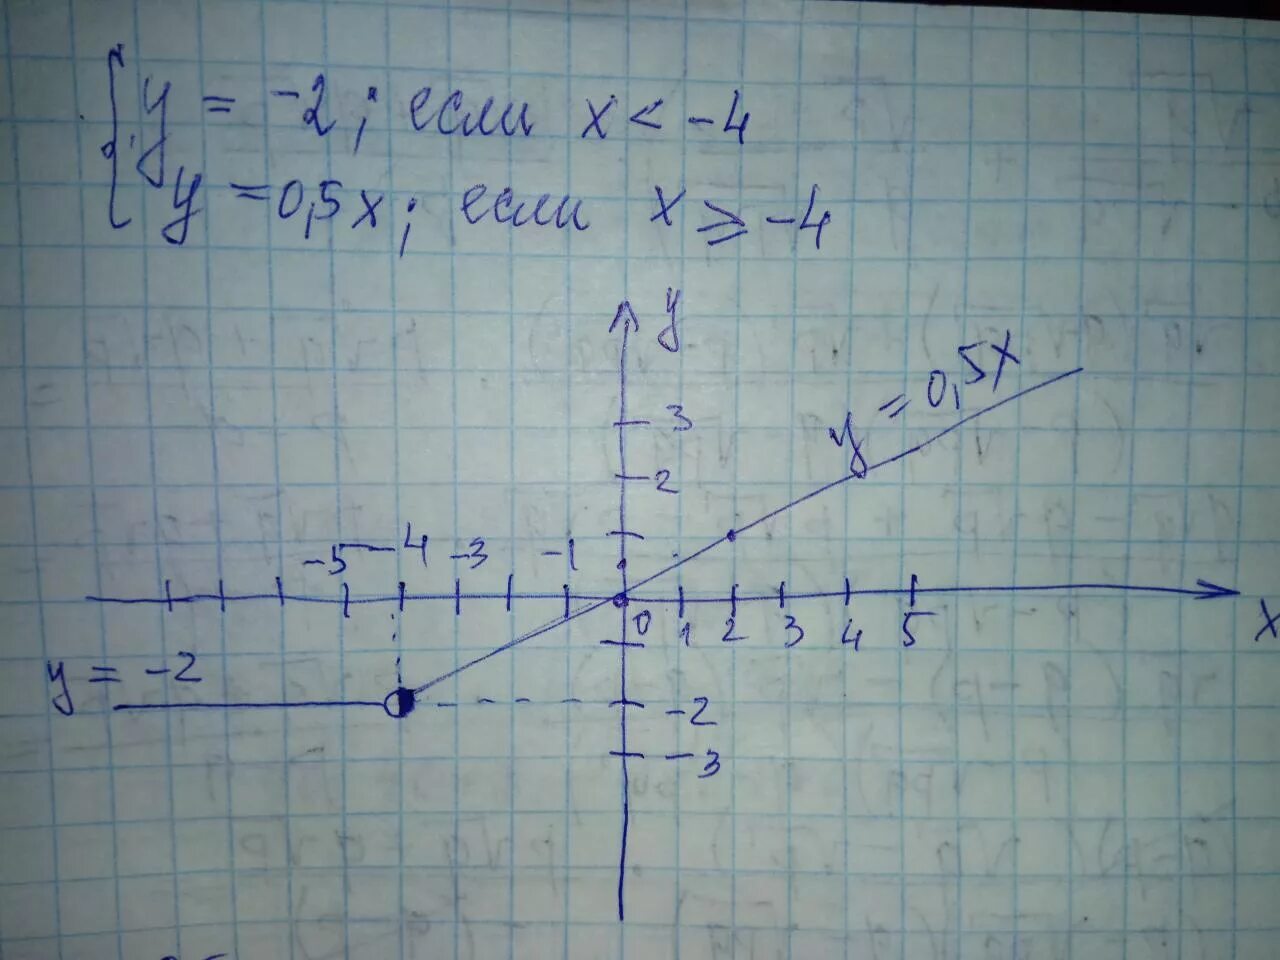 y = -2; если x < -4
y = 0,5x; если x ⩾ -4
y
y = 0,5x
3
2
-5 -4 -3 -1
0 1 2 3 4 5
x
y = -2
-2
-3